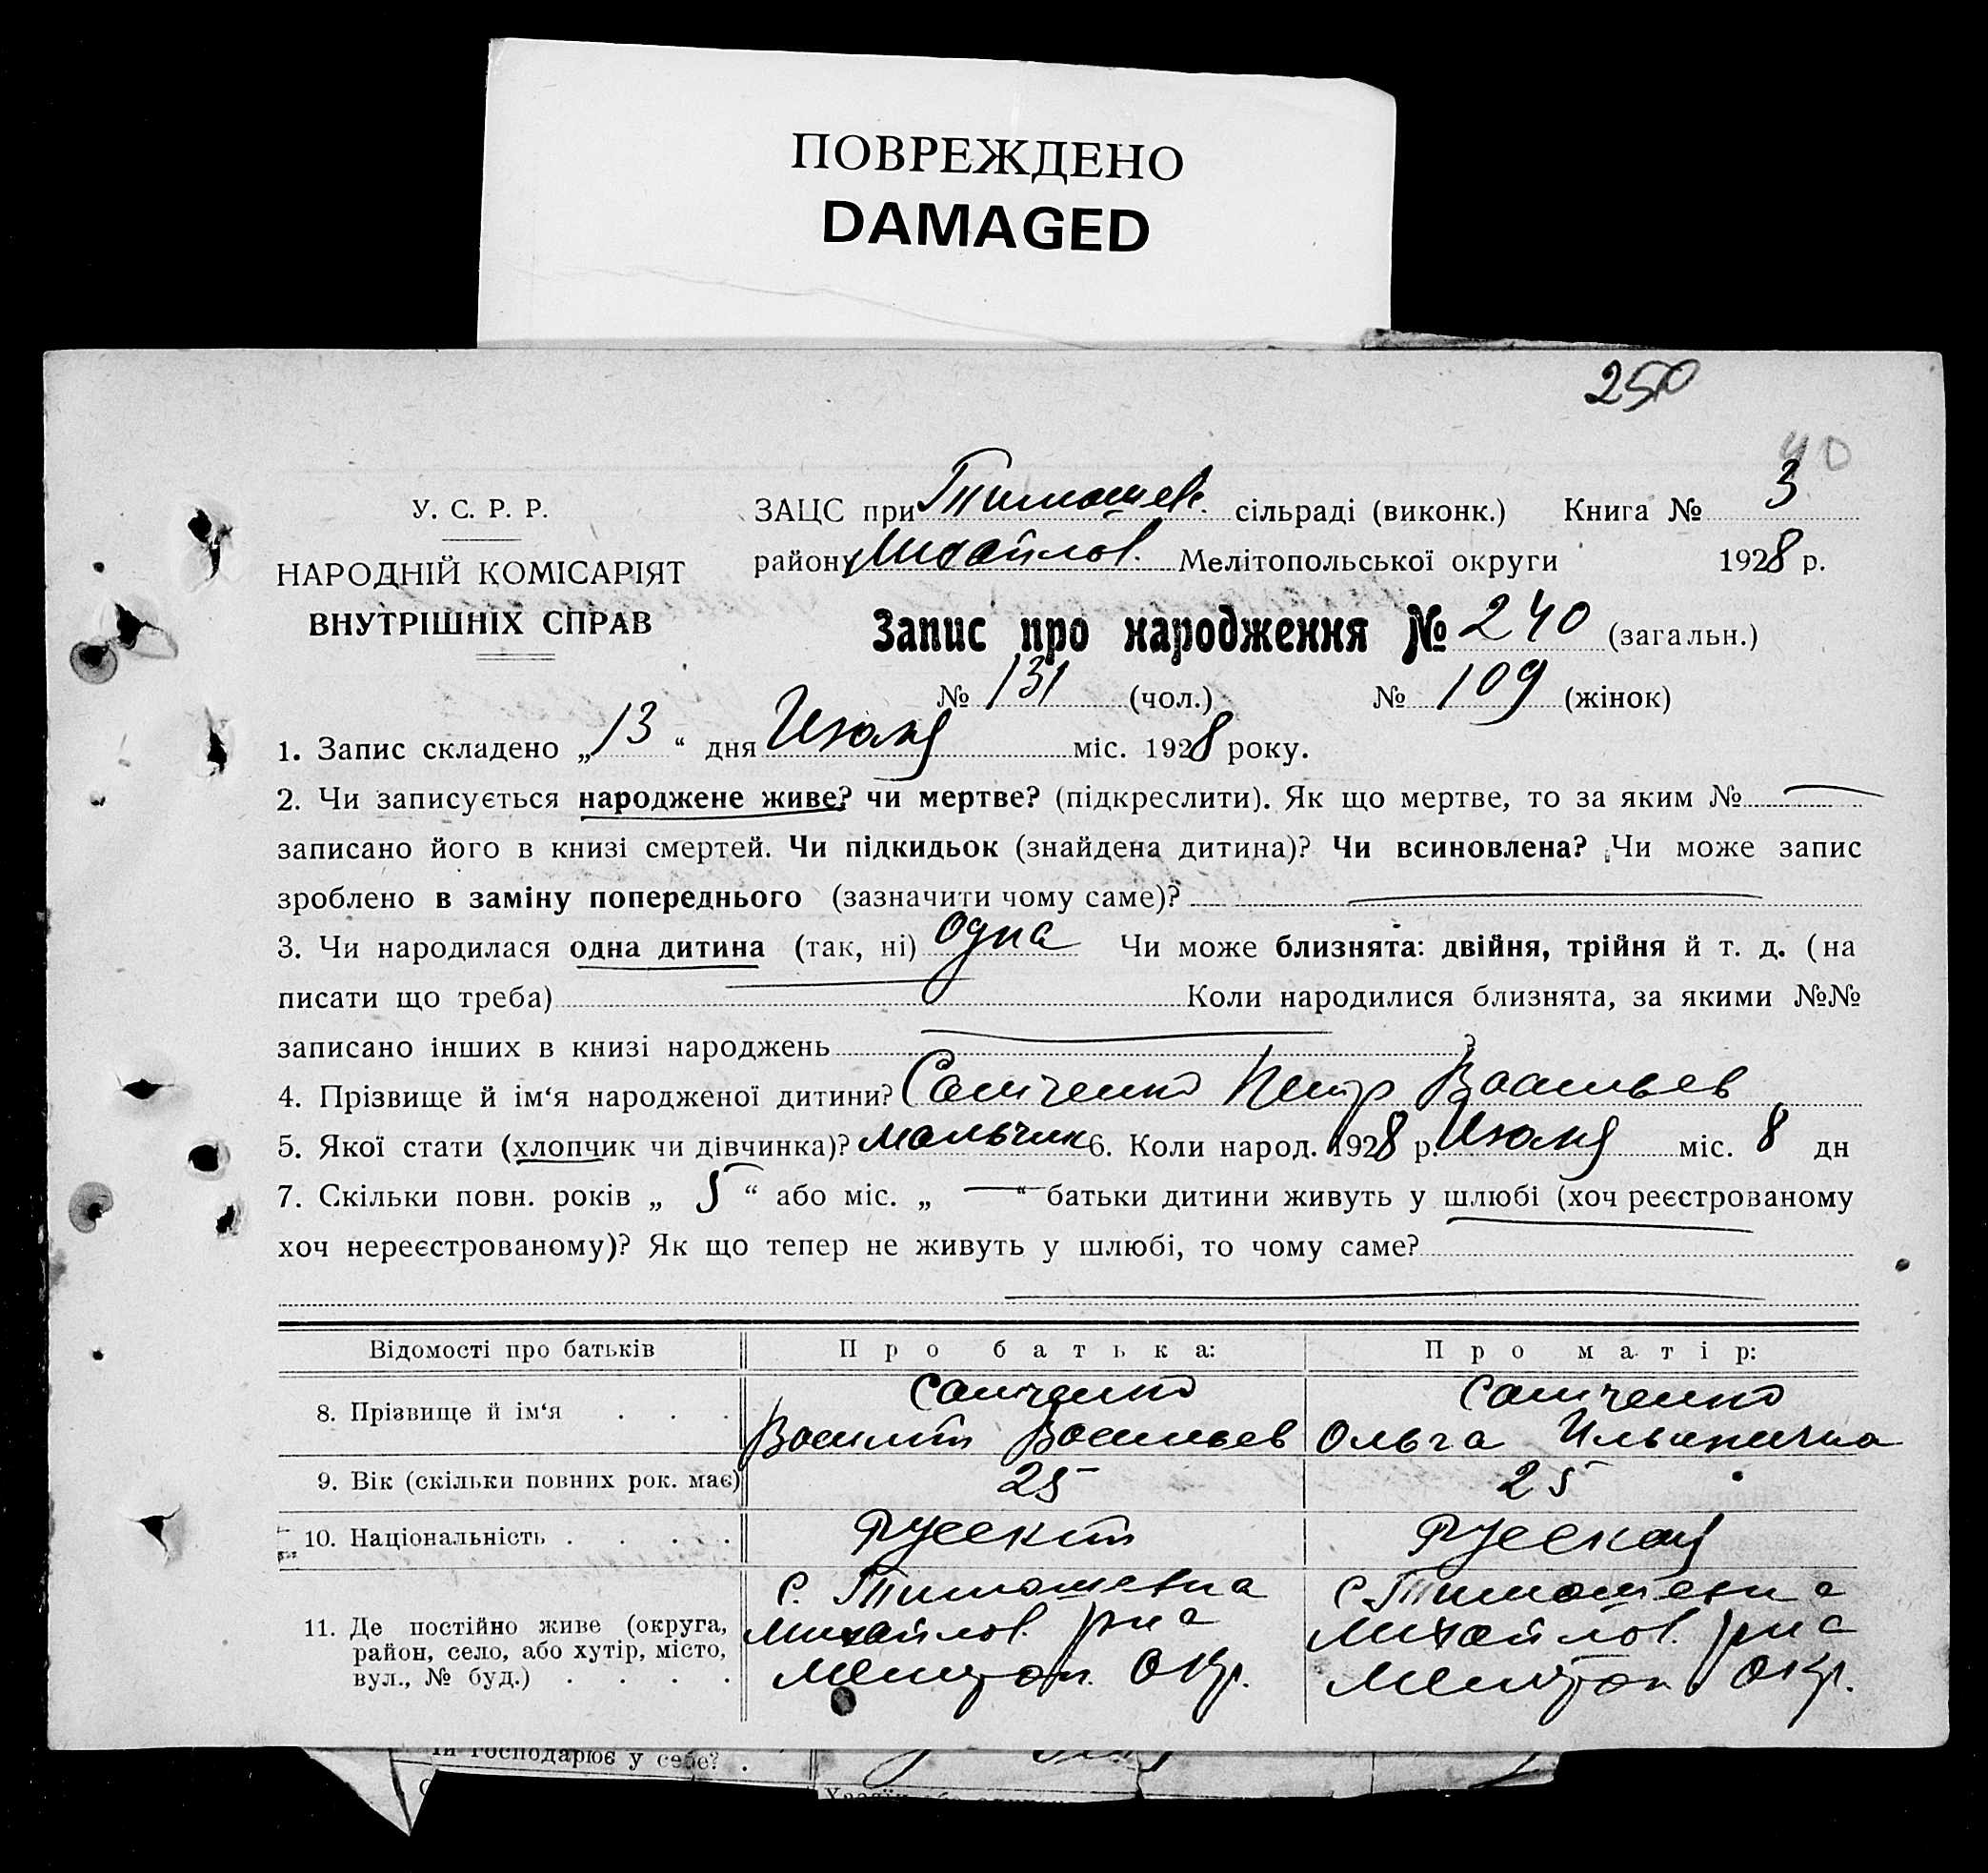 ПОВРЕЖДЕНО
DAMAGED
250
40
У. С. Р. Р.
НАРОДНІЙ КОМІСАРІЯТ
ВНУТРІШНІХ СПРАВ
ЗАЦС при Тимошев. сільраді (виконк.) Книга № 3
району Михайлов. Мелітопольської округи 1928 р.
Запис про народження № 240 (загальн.)
№ 131 (чол.) № 109 (жінок)
1. Запис складено „13“ дня Июля міс. 1928 року.
2. Чи записується народжене живе? чи мертве? (підкреслити). Як що мертве, то за яким №
записано його в книзі смертей. Чи підкидьок (знайдена дитина)? Чи всиновлена? Чи може запис
зроблено в заміну попереднього (зазначити чому саме)?
3. Чи народилася одна дитина (так, ні) Одна Чи може близнята: двійня, трійня й т. д. (на
писати що треба) Коли народилися близнята, за якими №№
записано інших в книзі народжень ?
4. Прізвище й ім‘я народженої дитини? Самченко Петр Васильев
5. Якої стати (хлопчик чи дівчинка)? Мальчик 6. Коли народ. 1928 р. Июля міс. 8 дн
7. Скільки повн. років „ 5 “ або міс. „ — “ батьки дитини живуть у шлюбі (хоч реєстрованому
хоч нереєстрованому)? Як що тепер не живуть у шлюбі, то чому саме?
Відомості про батьків Про батька: Про матір:
8. Прізвище й ім‘я . . . Самченко Василий Васильев Самченко Ольга Ильинична
9. Вік (скільки повних рок. має) 25 25
10. Національність . . . . Русский Русская
11. Де постійно живе (округа, район, село, або хутір, місто, вул., № буд.) . . . . с. Тимошевка Михайлов. р-на Мелитоп. Окр. с. Тимошевка Михайлов. р-на Мелитоп. Окр.
й господарює у себе? .